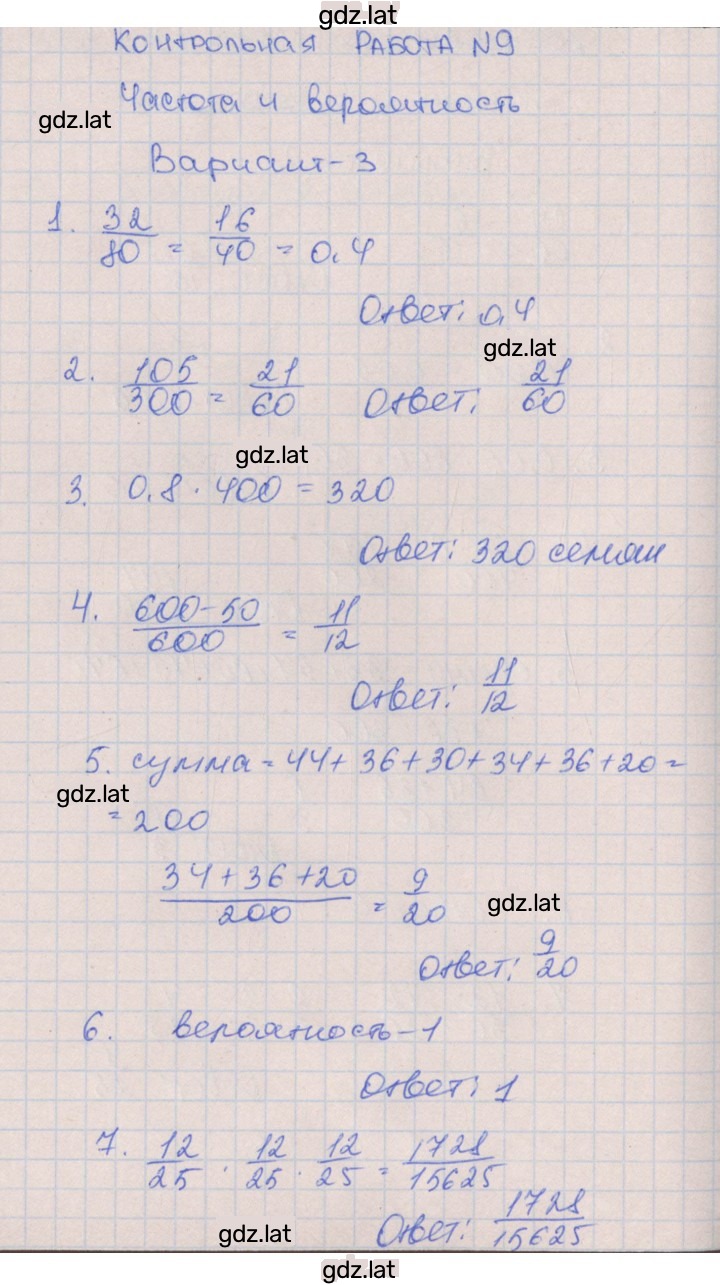 gdz.lat
Контрольная работа №9
Частота и вероятность
gdz.lat
Вариант-3
1. 32/80 = 16/40 = 0,4
Ответ: 0,4
gdz.lat
2. 105/300 = 21/60 Ответ: 21/60
gdz.lat
3. 0,8 · 400 = 320
Ответ: 320 семян
4. (600-50)/600 = 11/12
Ответ: 11/12
5. сумма = 44+36+30+34+36+20 =
gdz.lat
= 200
(34+36+20)/200 = 9/20
gdz.lat
Ответ: 9/20
6. вероятность-1
Ответ: 1
7. 12/25 · 12/25 · 12/25 = 1728/15625
Ответ: 1728/15625
gdz.lat
gdz.lat